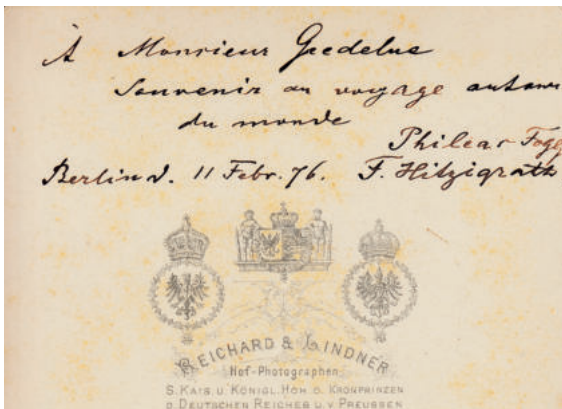 À Monsieur Gredelue
Souvenir au voyage autour
du monde
Phileas Fogg
Berlin d. 11 Febr. 76. F. Hitzigrath
REICHARD & LINDNER
Hof-Photographen
S. KAIS. U. KÖNIGL. HOH. D. KRONPRINZEN
D. DEUTSCHEN REICHES U. V. PREUSSEN